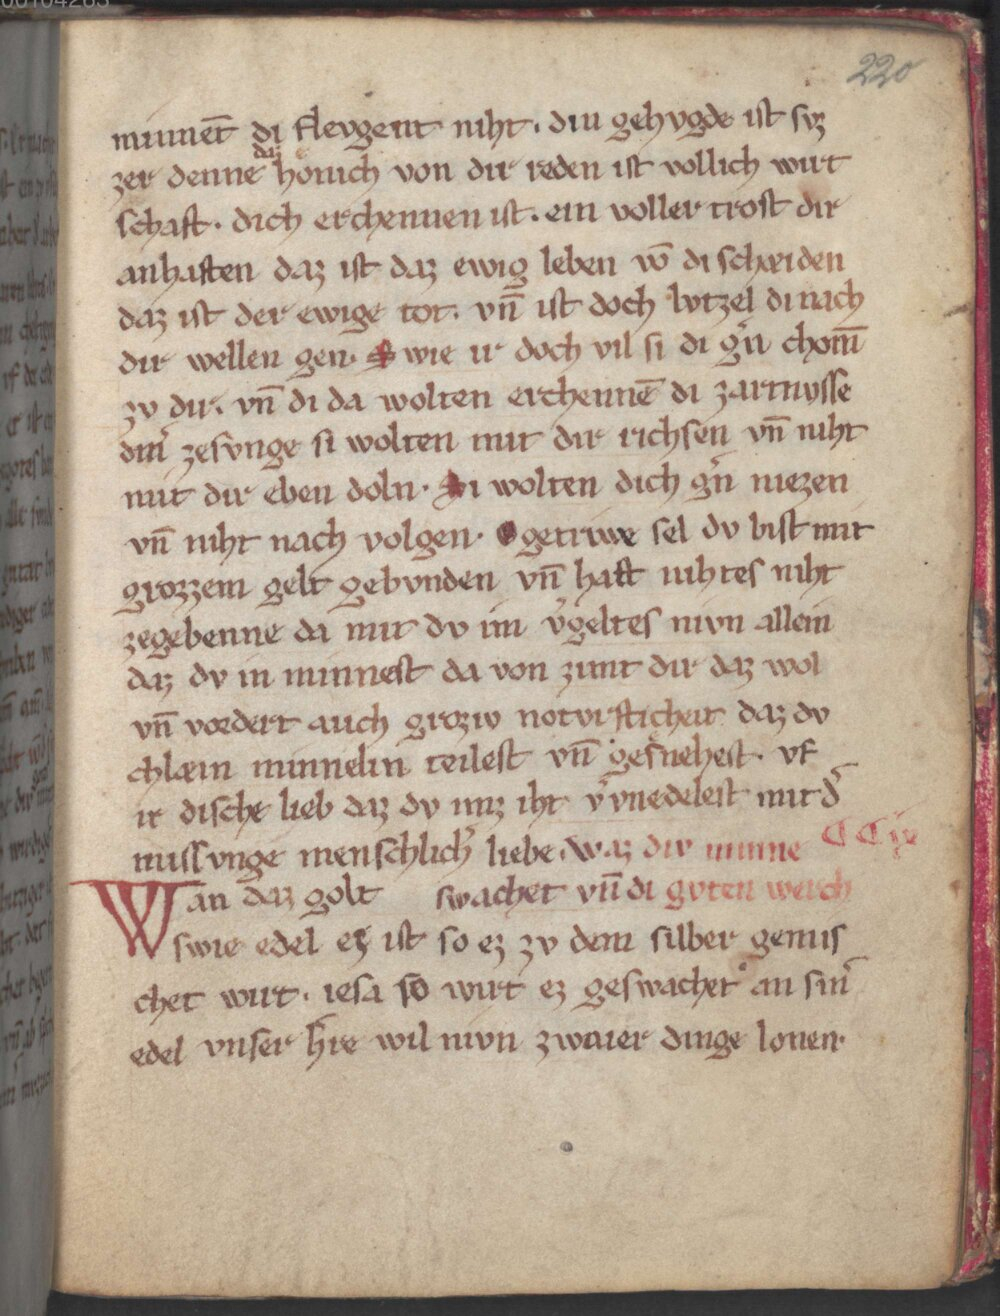 220
minnet̄ di flevgent niht. diu gehvgde ist svͦz
zer denne daz honich von dir reden ist vollich wirt
schaft. dich erchennen ist. ein voller trost dir
anhaften daz ist daz ewig leben vō di schæiden
daz ist der ewige tot. vn̄ ist doch lvtzel di nach
dir wellen gen. Swie ir doch vil si di gn̄ chom̄
zv dir. vn̄ di da wolten erchennē di zartnvsse
din zesvnge si wolten mit dir richsen vn̄ niht
mit dir eben doln. Si wolten dich gn̄ niezen
vn̄ niht nach volgen. O getriwe sel dv bist mit
grozzem gelt gebvnden vn̄ hast nihtes niht
zegebenne da mit dv im vgeltes nivn allein
daz dv in minnest da von zimt dir daz wol
vn̄ vodert auch groziv notvrfticheit daz dv
chlæin minnelin teilest vn̄ gesnehest. vf
ir dische lieb daz dv miz iht vvnedelest mit d
missvnge menschlich liebe. waz div minne CCix
Wan daz golt swachet vn̄ di gvten werch
swie edel ez ist so ez zv dem silber gemis
chet wirt. iesa so wirt ez geswachet an sin
edel vnser hre wil nivn zwaier dinge lonen.